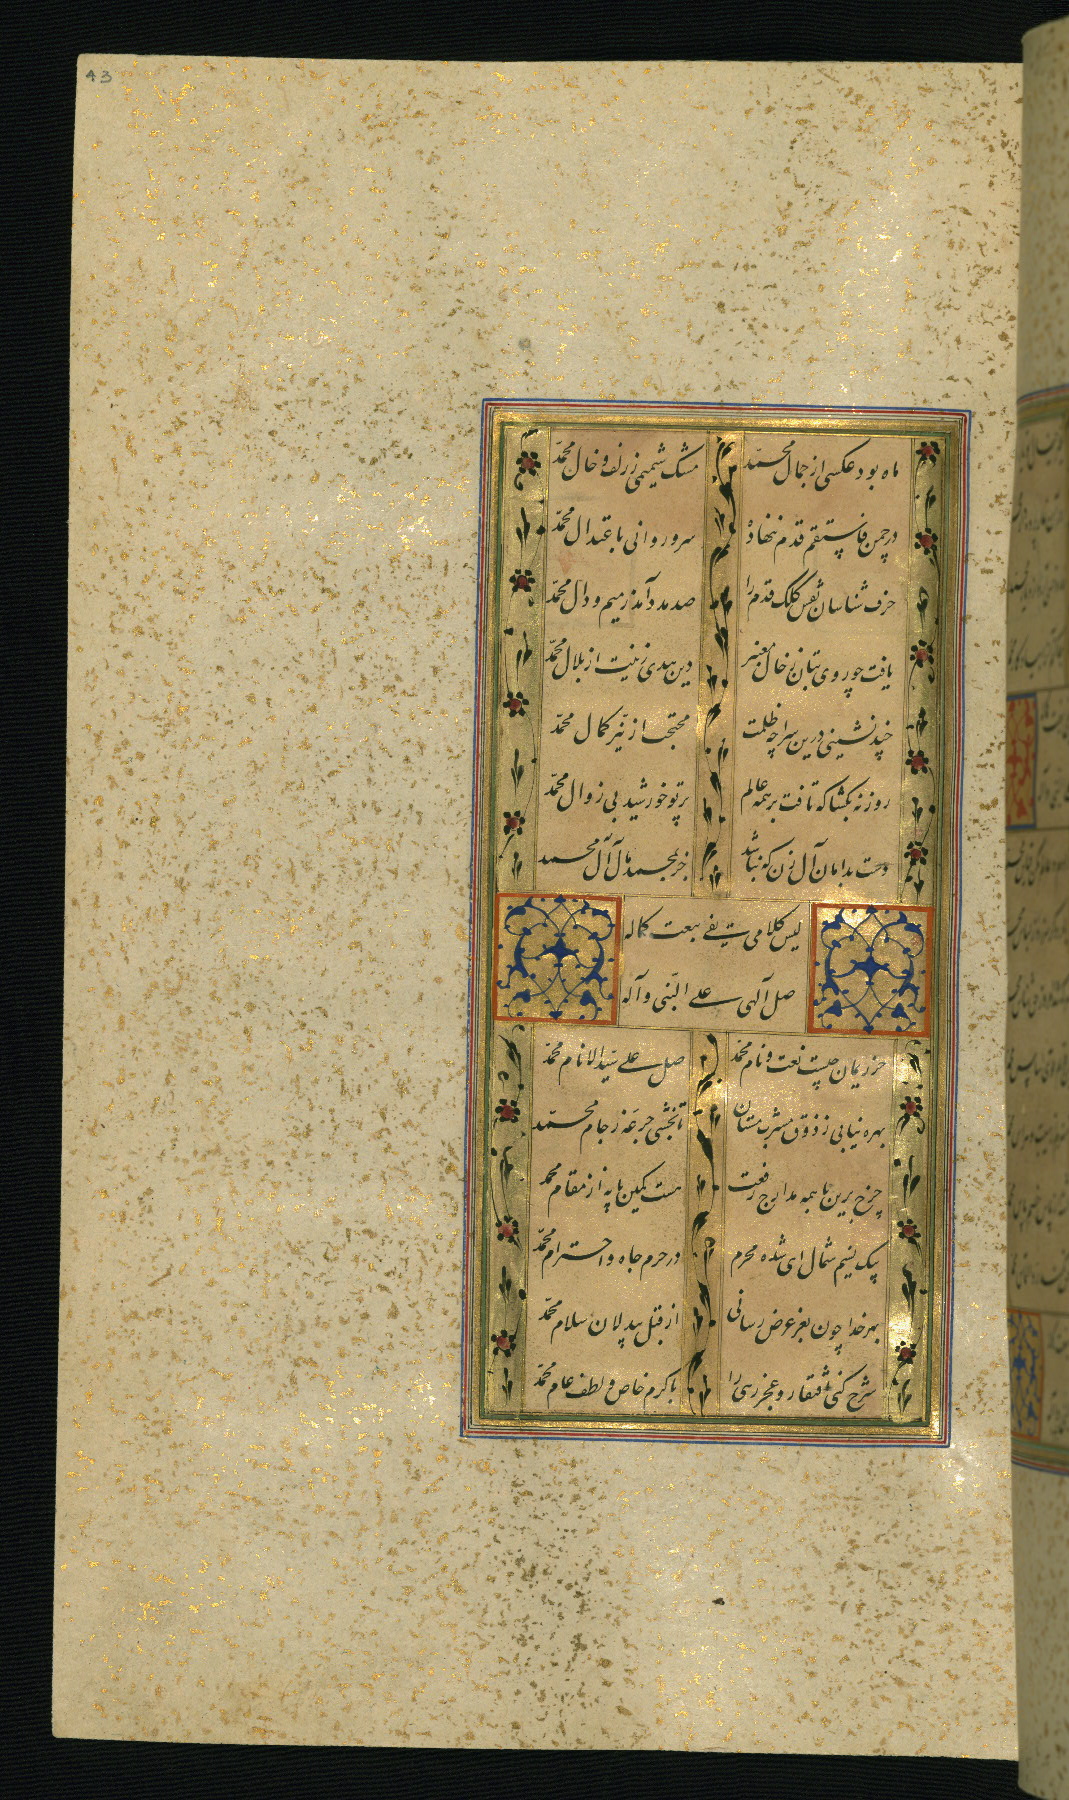 43
ماه بود عکسی از جمال محمد مشک شمیمی ز زلف و خال محمد
در چمن فاستقم قدم ننهاده سرو روانی باعتدال محمد
حرف شناسان نقش کلک قدم را صد مدد آمد ز میم و دال محمد
یافت چو روی بتان ز خال معنبر دین هدی زینت از بلال محمد
چند نشینی درین سراچه ظلمت محتجب از نیر کمال محمد
روزنه بکشا که تافت بر همه عالم پرتو خورشید بی زوال محمد
دست بدامان آل زن که نباشد جز بمحمد مآل آل محمد
لیس کلامی یفی بنعت کماله
صل الهی علی النبی و آله
حرز یمان چیست نعت و نام محمد صل علی سید الانام محمد
بهره نیابی ز ذوق مشرب مستان تا نچشی جرعه ز جام محمد
چرخ برین با همه مدارج رفعت هست کمین پایه از مقام محمد
پیک نسیم شمال ای شده محرم در حرم جاه و احترام محمد
بهر خدا چون بعز عرض رسانی از قبل بیدلان سلام محمد
شرح کنی افتقار و عجز رهی را با کرم خاص و لطف عام محمد